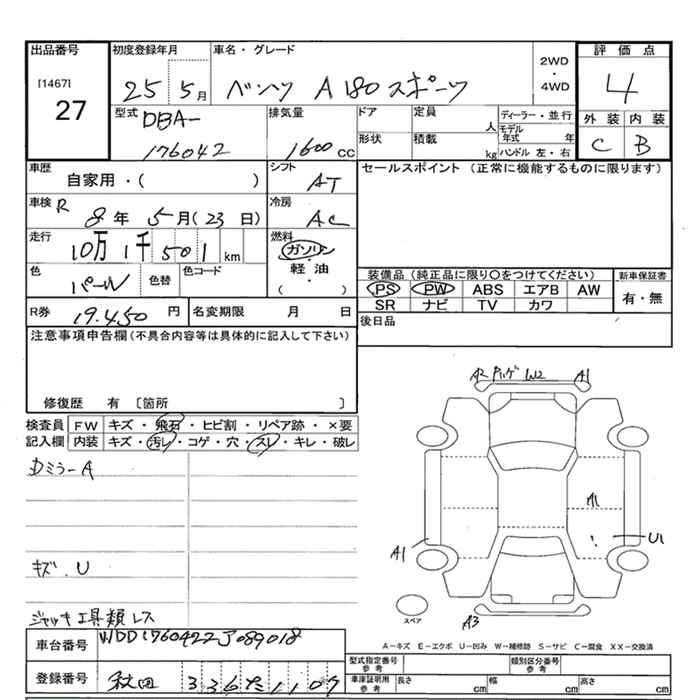 出品番号 初度登録年月 車名・グレード 2WD・4WD 評価点
[1467] 27 25 5月 ベンツ A180 スポーツ 4
型式 DBA-176042 排気量 1600cc ドア 定員 人 ディーラー・並行 外装 内装
形状 積載 kg モデル年式 年 ハンドル 左・右 C B
車歴 自家用・( ) シフト AT セールスポイント (正常に機能するものに限ります)
車検 R 8年 5月(23日) 冷房 AC
走行 10万 1千 501 km 燃料 ガソリン・軽油 ( )
色 パール 色替 色コード 装備品(純正品に限り○をつけてください) 新車保証書
PS PW ABS エアB AW 有・無
SR ナビ TV カワ
R券 19.450 円 名変期限 月 日 後日品
注意事項申告欄(不具合内容等は具体的に記入して下さい)
修復歴 有 [箇所 ]
A2 W2 A1
検査員 FW キズ・飛石・ヒビ割・リペア跡・×要
記入欄 内装 キズ・汚レ・コゲ・穴・スレ・キレ・破レ
ミラーA
A1
U1
A1
キズ.U
スペア
A3
ジャッキ工具類レス
A-キズ E-エクボ U-凹み W-補修跡 S-サビ C-腐食 XX-交換済
車台番号 WDD1760422J089018
型式指定番号 参考 類別区分番号 参考
登録番号 秋田 336 た 1109 車庫証明用 参考 長さ cm 幅 cm 高さ cm